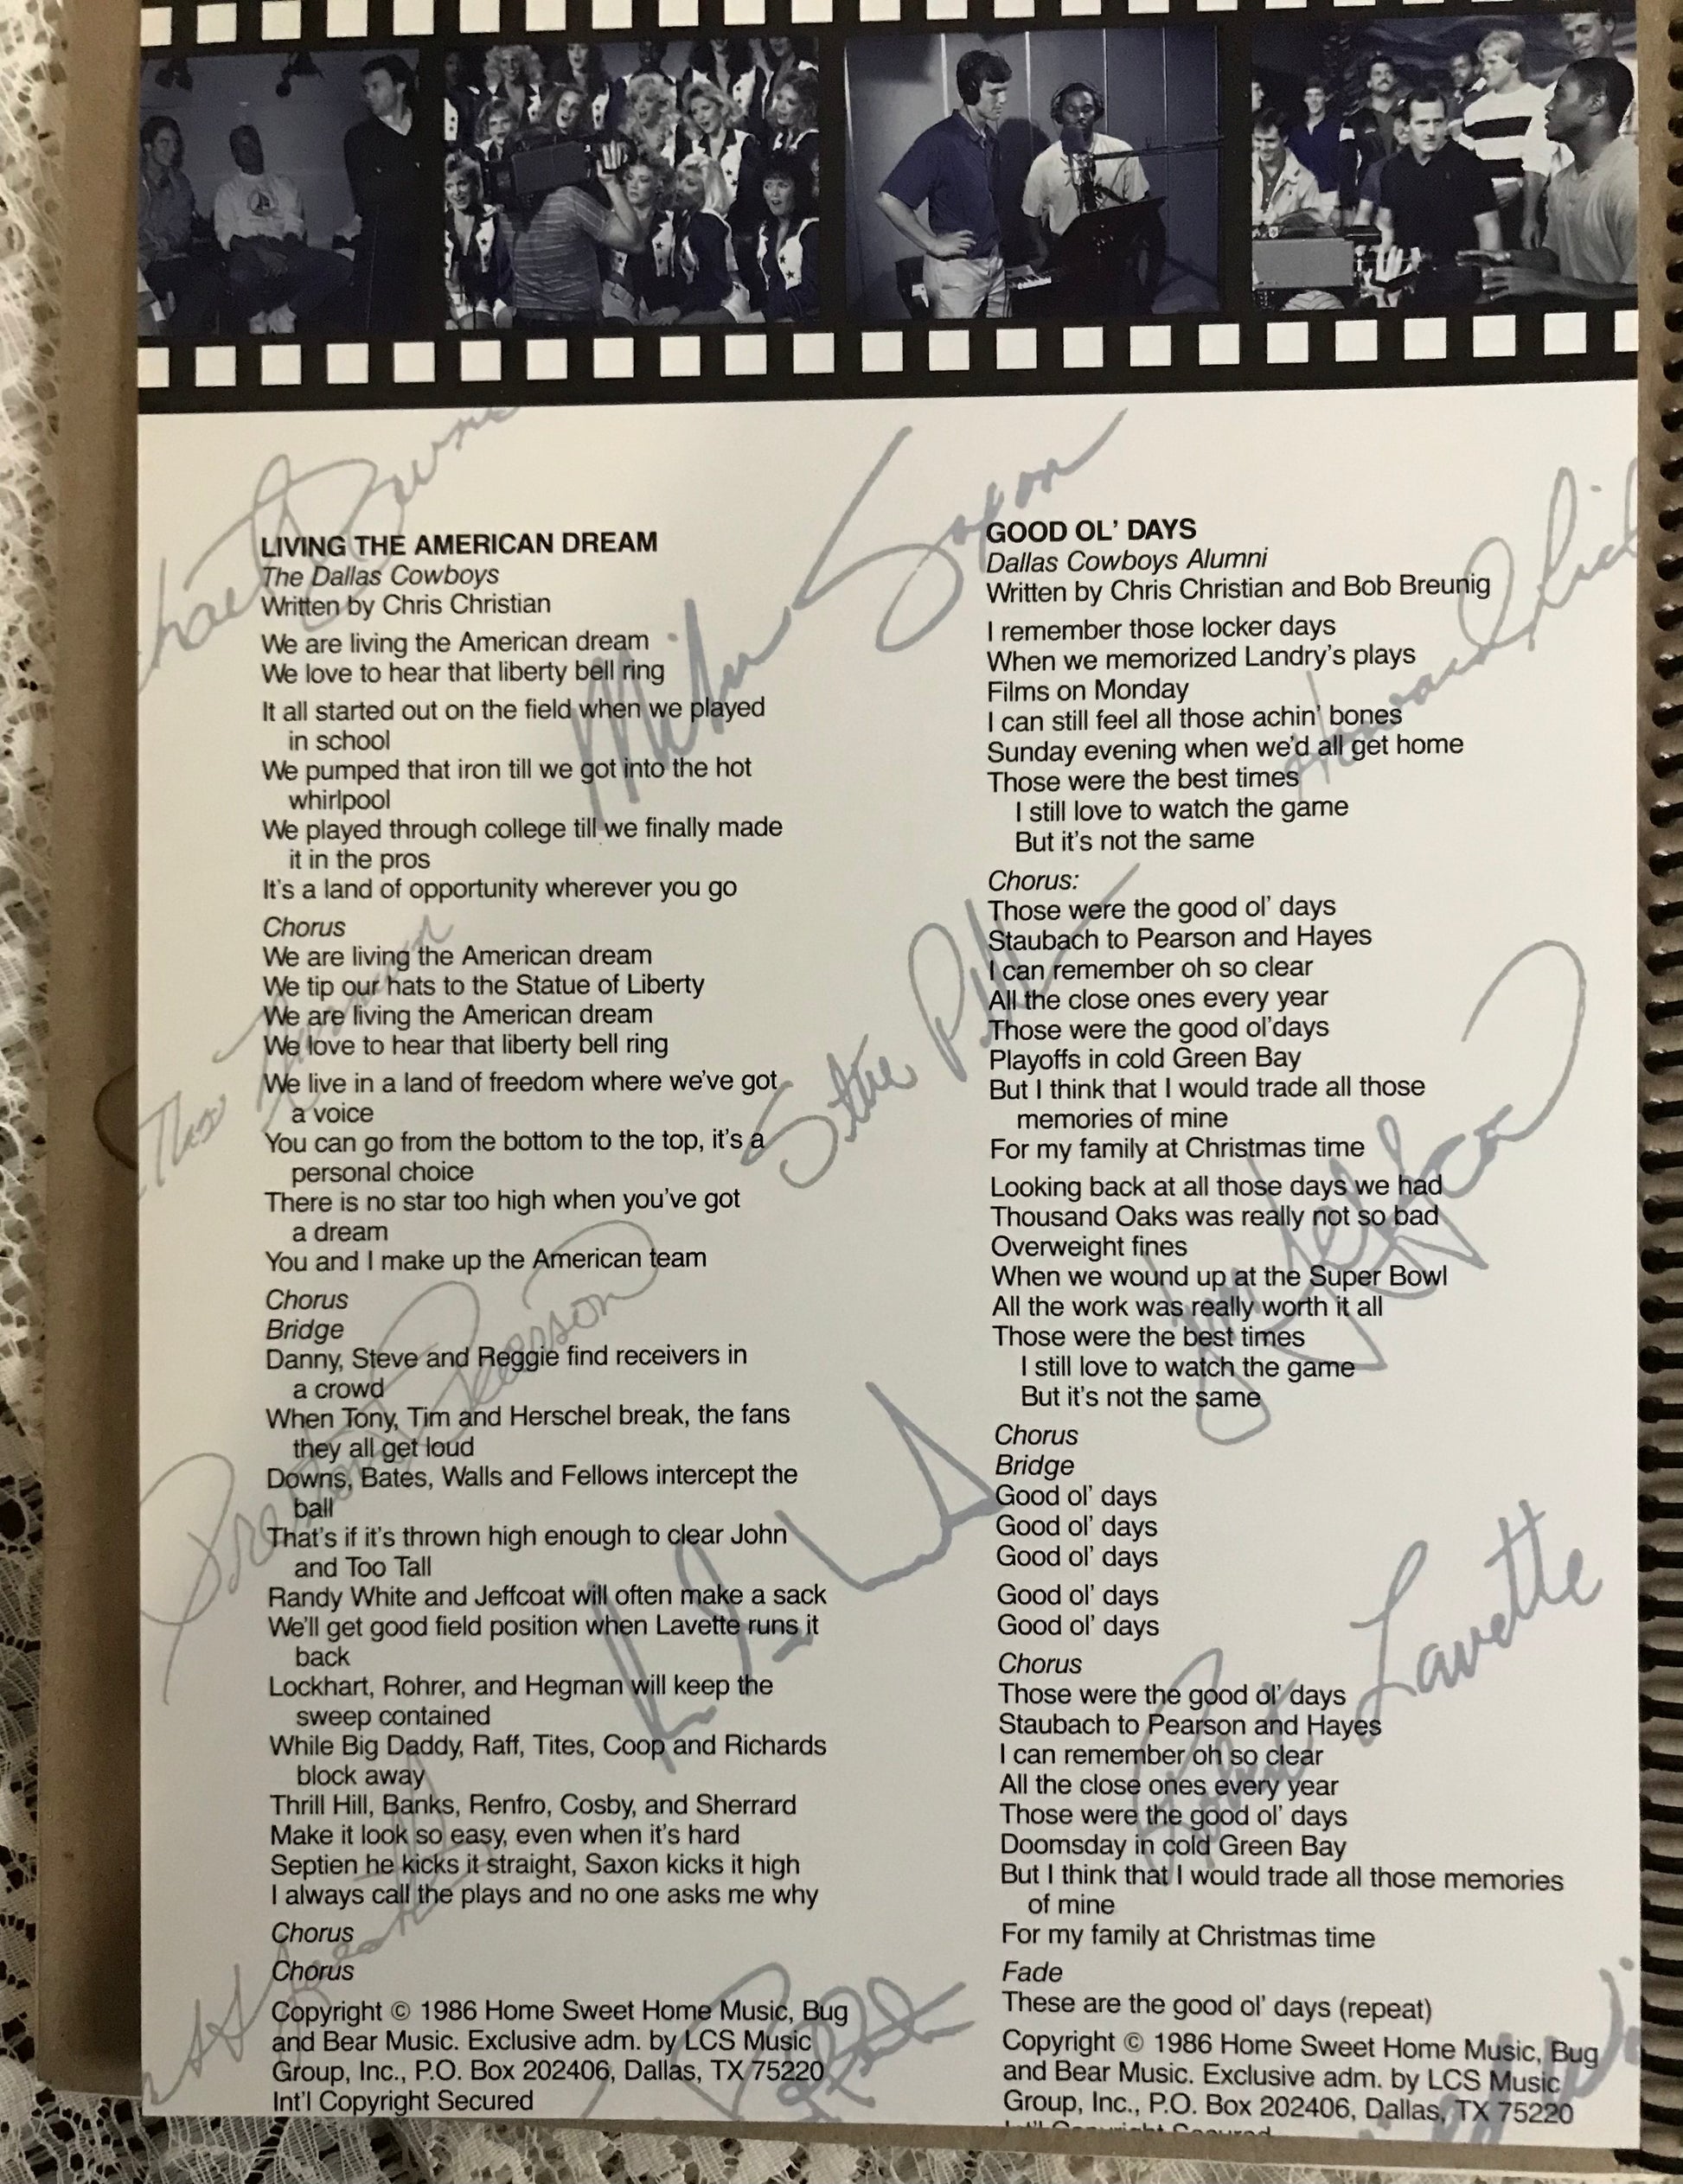 LIVING THE AMERICAN DREAM
The Dallas Cowboys
Written by Chris Christian
We are living the American dream
We love to hear that liberty bell ring
It all started out on the field when we played
in school
We pumped that iron till we got into the hot
whirlpool
We played through college till we finally made
it in the pros
It's a land of opportunity wherever you go
Chorus
We are living the American dream
We tip our hats to the Statue of Liberty
We are living the American dream
We love to hear that liberty bell ring
We live in a land of freedom where we've got
a voice
You can go from the bottom to the top, it's a
personal choice
There is no star too high when you've got
a dream
You and I make up the American team
Chorus
Bridge
Danny, Steve and Reggie find receivers in
a crowd
When Tony, Tim and Herschel break, the fans
they all get loud
Downs, Bates, Walls and Fellows intercept the
ball
That's if it's thrown high enough to clear John
and Too Tall
Randy White and Jeffcoat will often make a sack
We'll get good field position when Lavette runs it
back
Lockhart, Rohrer, and Hegman will keep the
sweep contained
While Big Daddy, Raff, Tites, Coop and Richards
block away
Thrill Hill, Banks, Renfro, Cosby, and Sherrard
Make it look so easy, even when it's hard
Septien he kicks it straight, Saxon kicks it high
I always call the plays and no one asks me why
Chorus
Chorus
Copyright © 1986 Home Sweet Home Music, Bug
and Bear Music. Exclusive adm. by LCS Music
Group, Inc., P.O. Box 202406, Dallas, TX 75220
Int'l Copyright Secured
GOOD OL' DAYS
Dallas Cowboys Alumni
Written by Chris Christian and Bob Breunig
I remember those locker days
When we memorized Landry's plays
Films on Monday
I can still feel all those achin' bones
Sunday evening when we'd all get home
Those were the best times
I still love to watch the game
But it's not the same
Chorus:
Those were the good ol' days
Staubach to Pearson and Hayes
I can remember oh so clear
All the close ones every year
Those were the good ol'days
Playoffs in cold Green Bay
But I think that I would trade all those
memories of mine
For my family at Christmas time
Looking back at all those days we had
Thousand Oaks was really not so bad
Overweight fines
When we wound up at the Super Bowl
All the work was really worth it all
Those were the best times
I still love to watch the game
But it's not the same
Chorus
Bridge
Good ol' days
Good ol' days
Good ol' days
Good ol' days
Good ol' days
Chorus
Those were the good ol' days
Staubach to Pearson and Hayes
I can remember oh so clear
All the close ones every year
Those were the good ol' days
Doomsday in cold Green Bay
But I think that I would trade all those memories
of mine
For my family at Christmas time
Fade
These are the good ol' days (repeat)
Copyright © 1986 Home Sweet Home Music, Bug
and Bear Music. Exclusive adm. by LCS Music
Group, Inc., P.O. Box 202406, Dallas, TX 75220
Int'l Copyright Secured
Mike Saxon
Steve
Preston Pearson
Jim Jeffcoat
Robert Lavette